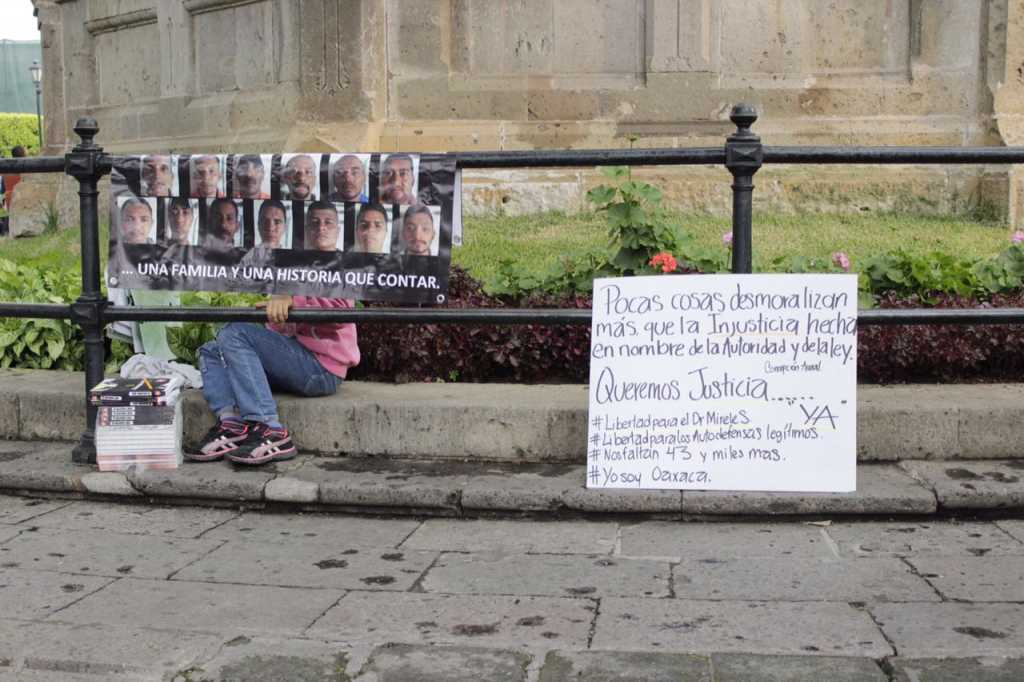 ... UNA FAMILIA Y UNA HISTORIA QUE CONTAR.
Pocas cosas desmoralizan
más que la Injusticia hecha
en nombre de la Autoridad y de la ley.
Concepción Arenal
Queremos Justicia......
YA.
#Libertad para el Dr Mireles
#Libertad para los Autodefensas legítimos.
#Nos faltan 43 y miles mas.
#Yo soy Oaxaca.